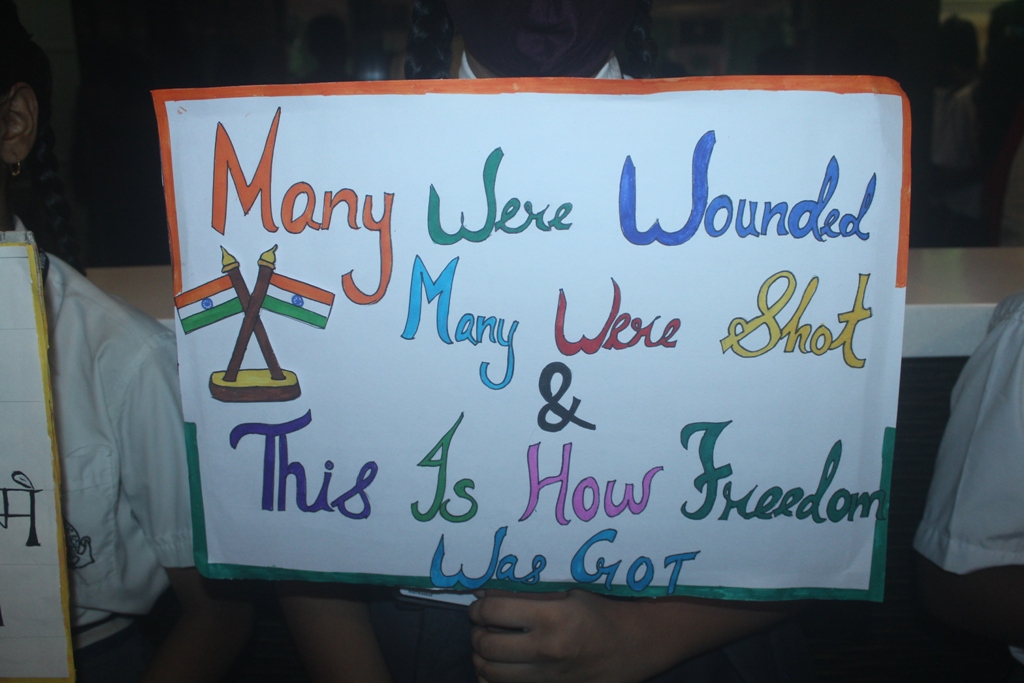 Many Were Wounded
Many Were Shot
&
This Is How Freedom
Was GOT
में